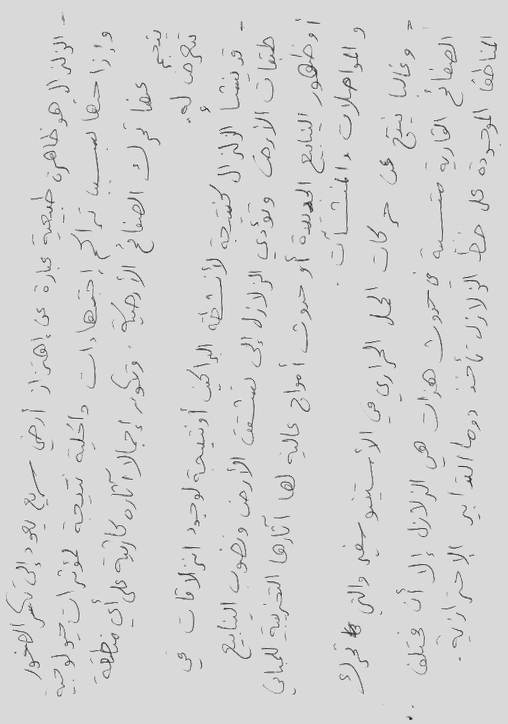 - الزلزال هو ظاهرة طبيعية عبارة عن إهتزاز أرضي سريع يعود إلى تكسر الصخور
وإزاحتها بسبب تراكم إجتهادات داخلية نتيجة لمؤثرات جيولوجية
ينتج عنها تحرك الصفائح الأرضية. وتكون إجمالا آثاره كارثية على أي منطقة
تتعرض له.
- قد ينشأ الزلزال كنتيجة لأنشطة البراكين أو نتيجة لوجود انزلاقات في
طبقات الأرض وتؤدي الزلازل إلى تشقق الأرض ونضوب الينابيع
أو ظهور الينابيع الجديدة أو حدوث أمواج عالية لها آثارها التخريبية للمباني
والمواصلات والمنشآت.
- وغالبا ينتج عن حركات الحمل الحراري في الأستينوسفير والتي تحرك
الصفائح القارية متسببة في حدوث هزات هي الزلازل إلا أن مختلف
المناطق الموجودة على خط الزلازل تأخذ دوما التدابير الإحترازية.